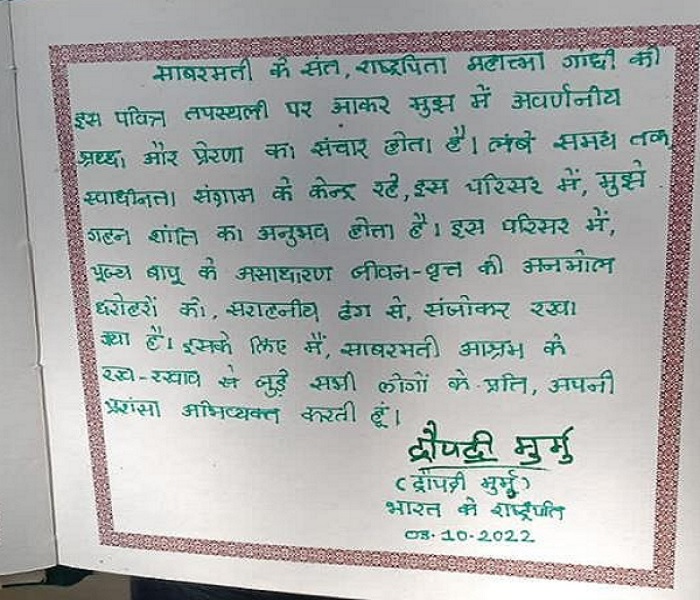 साबरमती के संत, राष्ट्रपिता महात्मा गांधी की
इस पवित्र तपस्थली पर आकर मुझ में अवर्णनीय
श्रद्धा और प्रेरणा का संचार होता है। लंबे समय तक
स्वाधीनता संग्राम के केन्द्र रहे, इस परिसर में, मुझे
गहन शांति का अनुभव होता है। इस परिसर में,
पूज्य बापू के असाधारण जीवन-वृत्त की अनमोल
धरोहरों को, सराहनीय ढंग से, संजोकर रखा
गया है। इसके लिए मैं, साबरमती आश्रम के
रख-रखाव से जुड़े सभी लोगों के प्रति, अपनी
प्रशंसा अभिव्यक्त करती हूं।
द्रौपदी मुर्मु
(द्रौपदी मुर्मु)
भारत के राष्ट्रपति
03.10.2022